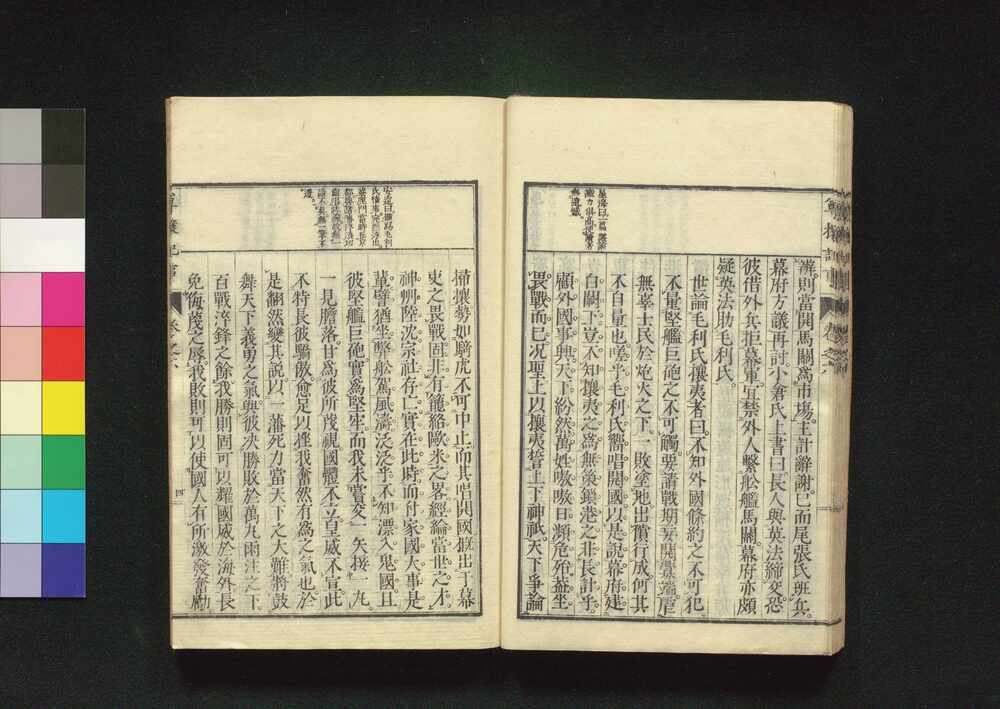 辨則當開馬關爲市場主計辭謝已而尾張氏班兵
幕府方議再討小倉氏上書曰長人與英法締交恐
彼借外兵拒幕軍宜禁外人繫船艦馬關幕府亦頗
疑英法助毛利氏
世論毛利氏攘夷者曰不知外國條約之不可犯
不量堅艦巨砲之不可觸要請戰期妄開釁端
無辜士民於炮火之下一敗塗地出償行成何其
不自量也嗟乎毛利氏嚮唱開國以是說幕府建
白闕下豈不知攘夷之爲無策鎖港之非長計乎
顧外國事興天下紛然萬姓嗷嗷日瀕危殆益坐
畏戰而已況聖上以攘夷誓上下神祇天下爭論
掃攘勢如騎虎不可中止而其唱開國概出于幕
吏之畏戰固非有籠絡歐米之畧經綸當世之才
神州陸沈宗社存亡實在此時而付家國大事是
輩譬猶坐弊船駕風濤泛泛乎不知漂入鬼國且
彼堅艦巨砲實爲堅牢而我未嘗交一矢接一丸
一見膽落甘爲彼所茂視國體不立皇威不宣此
不特長彼驕傲愈足以挫我奮然有爲之氣也於
是翻然變其說以一藩死力當天下之大難將鼓
舞天下義勇之氣與彼決勝敗於萬丸雨注之下
百戰淬鋒之餘我勝則固可以耀國威於海外長
免侮蔑之辱我敗則可以使國人有所激發奮勵
四